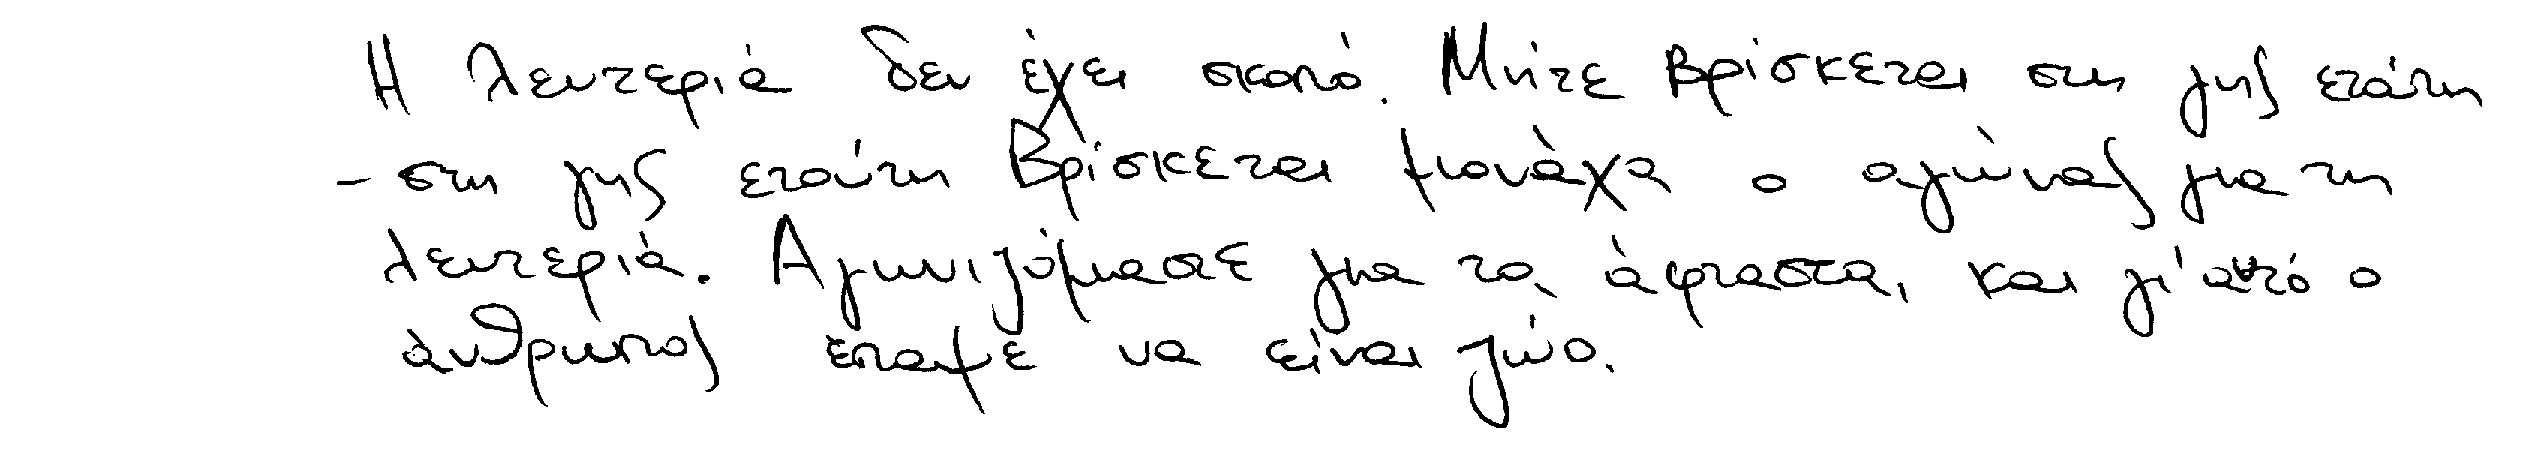 Η λευτεριά δεν έχει σκοπό. Μήτε βρίσκεται στη γης ετότη
- στη γης ετούτη βρίσκεται μονάχα ο αγώνας για τη
λευτεριά. Αγωνιζόμασε για τα άφταστα, και γι'αυτό ο
άνθρωπος έπαψε να είναι ζώο.